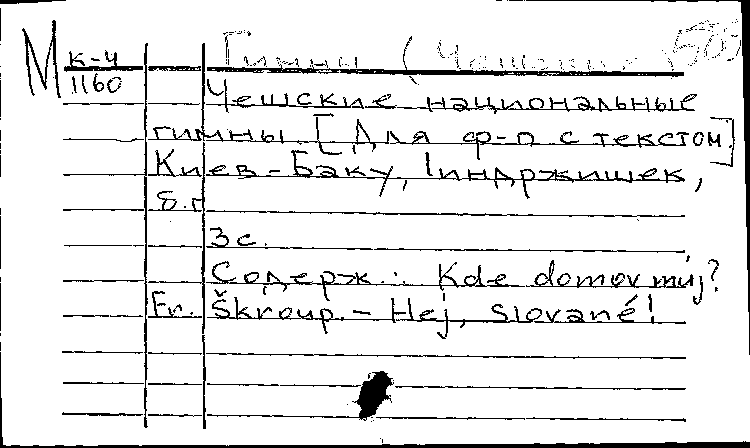 М к-4 Гимны (Чешские
1160
Чешские национальные
гимны. [Для ф-п с текстом.]
Киев-Баку, Iиндржишек,
б.г.
3с.
Содерж.: Kde domov můj?
Fr. Škroup. - Hej, Slované!